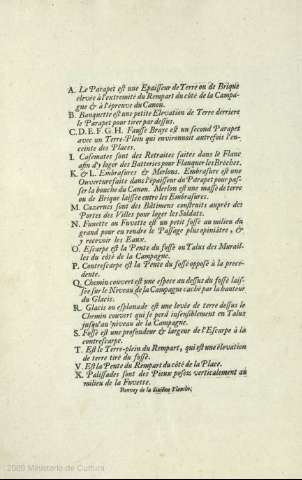 A. Le Parapet est une Epaisseur de Terre ou de Brique
elevée à l'extremité du Rempart du côté de la Campa-
gne & à l'épreuve du Canon.
B. Banquette est une petite Elevation de Terre derriere
le Parapet pour tirer par dessus.
C.D.E.F.G.H. Fausse Braye est un second Parapet
avec un Terre-Plein qui environnoit autrefois l'en-
ceinte des Places.
I. Casemates sont des Retraites faites dans le Flanc
afin d'y loger des Batteries pour Flanquer les Breches.
K. & L. Embrasures & Merlons. Embrasure est une
Ouverture faite dans l'épaisseur du Parapet pour pas-
ser la bouche du Canon. Merlon est une masse de terre
ou de Brique laissée entre les Embrasures.
M. Cazernes sont des Bâtimens construits auprès des
Portes des Villes pour loger les Soldats.
N. Funette ou Fuvette est un petit fossé au milieu du
grand pour en rendre le Passage plus opiniâtre, &
y recevoir les Eaux.
O. Escarpe est la Pente du fossé ou Talus des Murail-
les du côté de la Campagne.
P. Contrescarpe est la Pente du fossé opposé à la prece-
dente.
Q. Chemin couvert est une espace au dessus du fossé lais-
sée sur le Niveau de la Campagne caché par la hauteur
du Glacis.
R. Glacis ou esplanade est une levée de terre dessus le
Chemin couvert qui se perd insensiblement en Talus
jusqu'au niveau de la Campagne.
S. Fossé est une profondeur & largeur de l'Escarpe à la
contrescarpe.
T. Est le Terre-plein du Rempart, qui est une élevation
de terre tiré du fossé.
V. Est la Pente du Rempart du côté de la Place.
X. Palissades sont des Pieux posez verticalement au
milieu de la Fuvette.
Renvoy de la Planche.
2009 Ministerio de Cultura